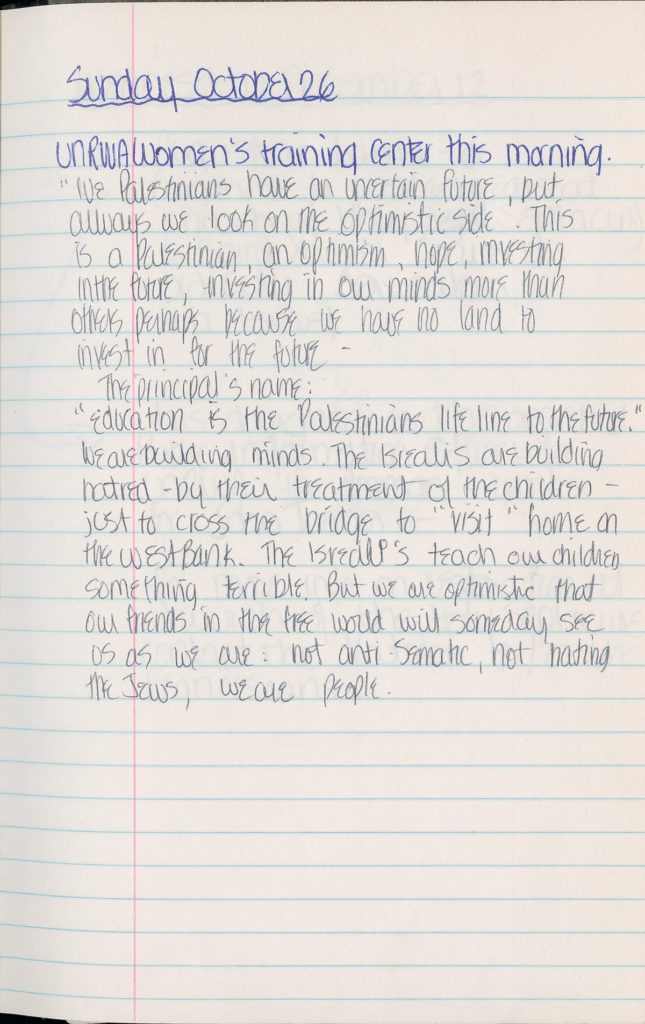 Sunday October 26
UNRWA Women's training center this morning.
"We Palestinians have an uncertain future, but
allways we look on the optimistic side. This
is a Palestinian, an optimism, hope, investing
in the future, investing in our minds more than
others perhaps because we have no land to
invest in for the future -
The principal's name:
"Education is the Palestinians life line to the future."
We are building minds. The Isrealis are building
hatred - by their treatment of the children -
just to cross the bridge to "visit" home on
the West Bank. The Isreali's teach our children
something terrible. But we are optimistic that
our friends in the free world will someday see
us as we are: not anti Sematic, not hating
the Jews, we are people.